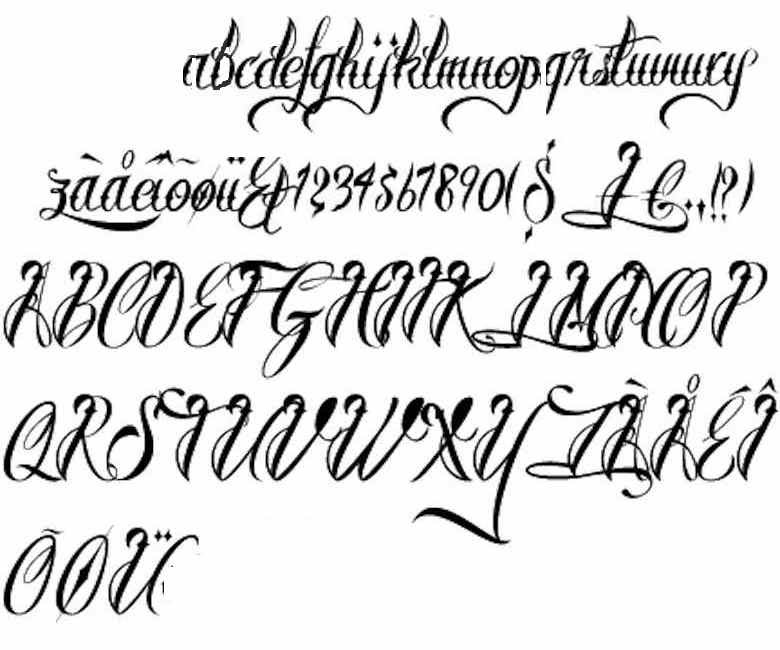 abcdefghijklmnopqrstuvwxy
zàåéîõøü&1234567890($ £ €.,!?)
ABCDEFGHIJKLMNOP
QRSTUVWXYZÀÅÉÎ
ÕØÜ